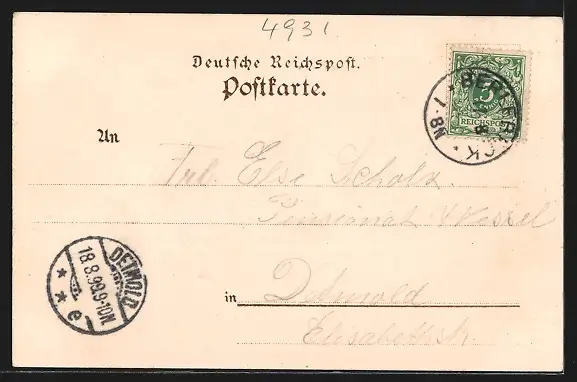 4931
Deutsche Reichspost.
Postkarte.
5
REICHSPOST
8-N
An
Frl. Else Scholz.
Pensionat
DETMOLD
18.8.99.9-10N.
* * e
in Detmold
Elisabethstr.